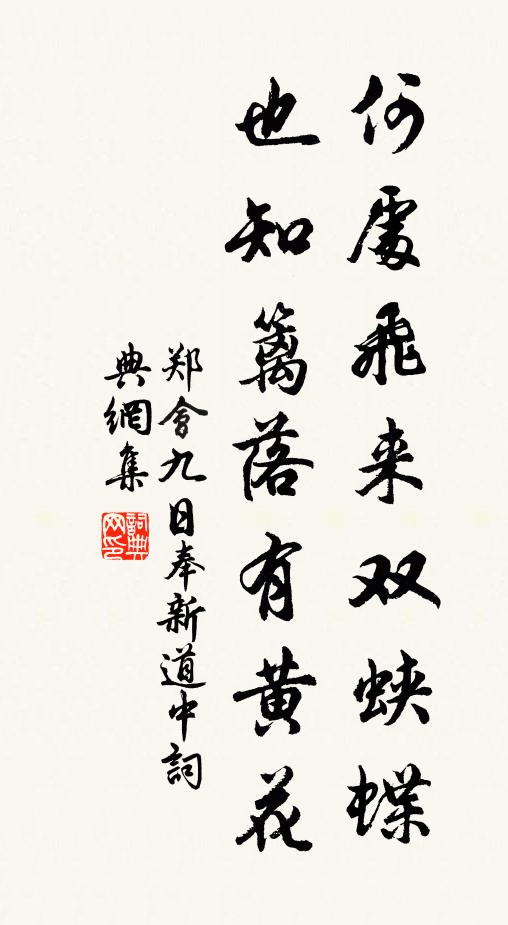 何處飛来双蛺蝶
也知籬落有黄花
郑會九日奉新道中詞
典網集
詞典
网印